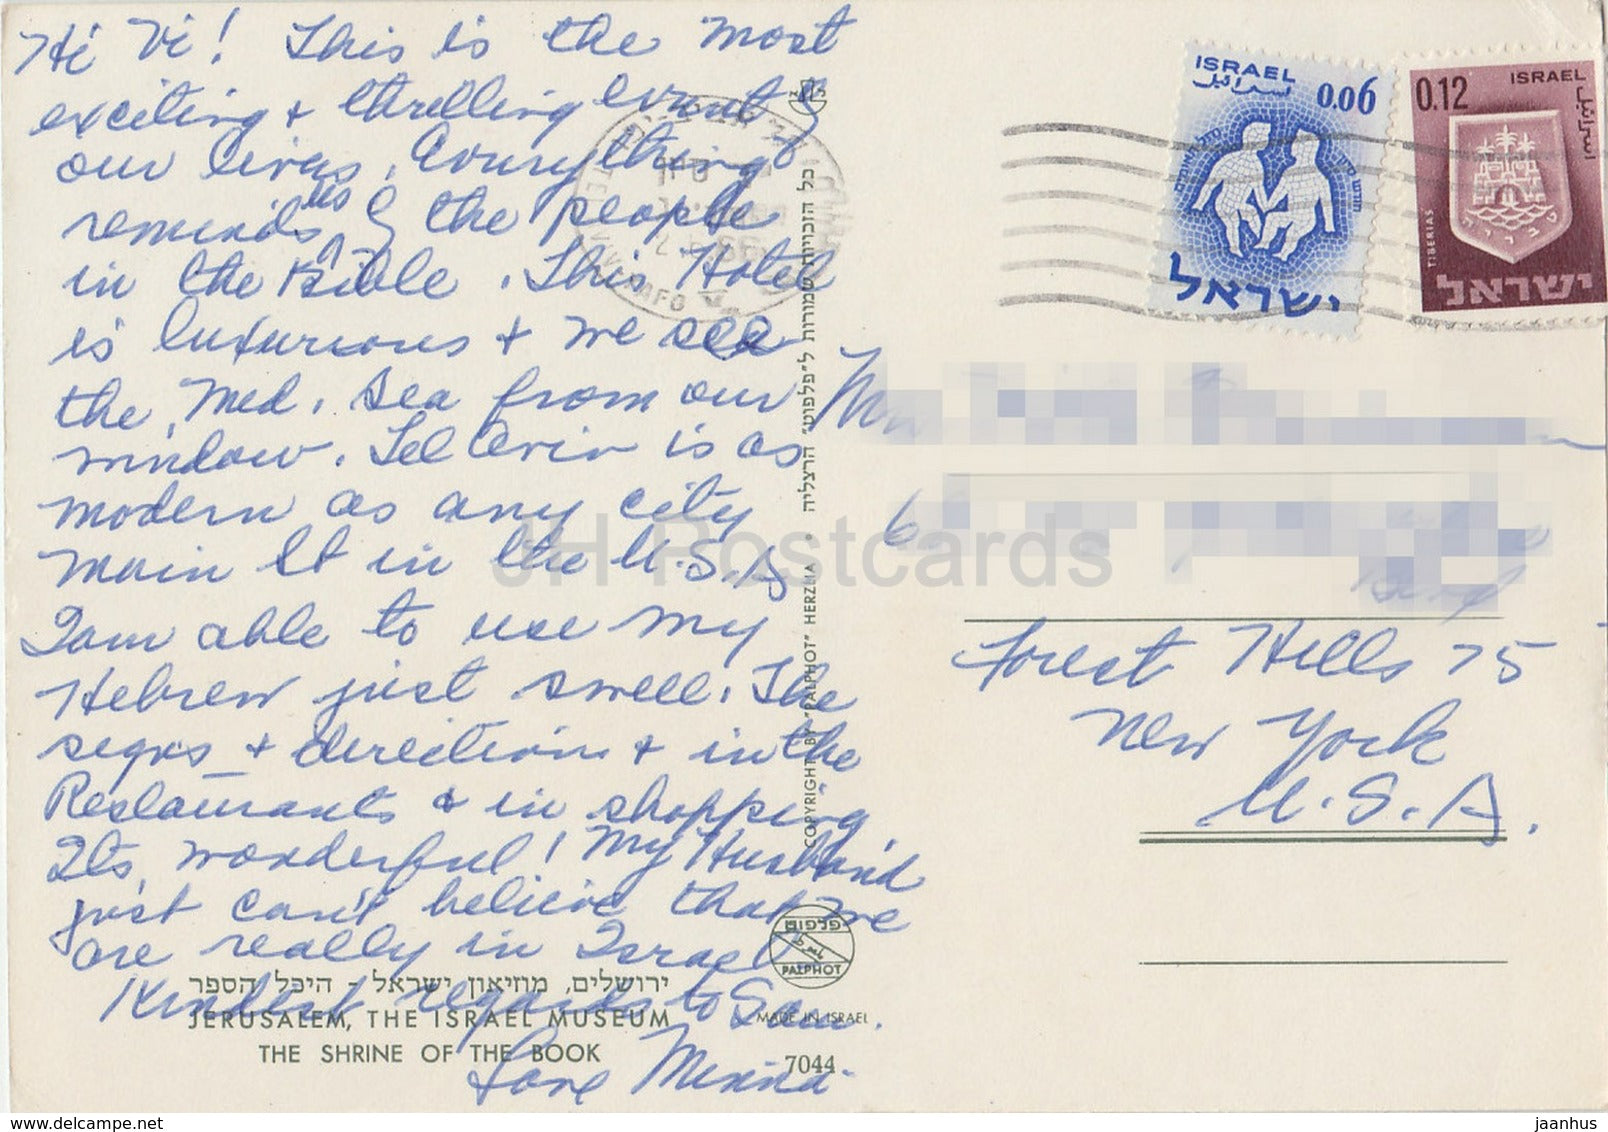 Hi Vi! This is the most
exciting + thrilling event of
our lives. Everything
reminds us of the people
in the Bible. This Hotel
is luxurious + we see
the Med. Sea from our
window. Tel Aviv is as
modern as any city
main St in the U.S.A
I am able to use my
Hebrew just swell. The
signs + directions + in the
Restaurants & in shopping.
Its wonderful! My Husband
just can't believe that we
are really in Israel
Kindest regards to Sam.
Love Minna
ירושלים, מוזיאון ישראל - היכל הספר
JERUSALEM, THE ISRAEL MUSEUM
THE SHRINE OF THE BOOK
פלפוט
PALPHOT
MADE IN ISRAEL
7044
כל הזכויות שמורות ל"פלפוט" הרצליה • COPYRIGHT BY "PALPHOT" HERZLIA
ISRAEL
اسرائيل
0.06
ישראל
0.12
ISRAEL
اسرائيل
TIBERIAS
טבריה
ישראל
Forest Hills 75
New York
U.S.A.
JH Postcards
www.delcampe.net
jaanhus